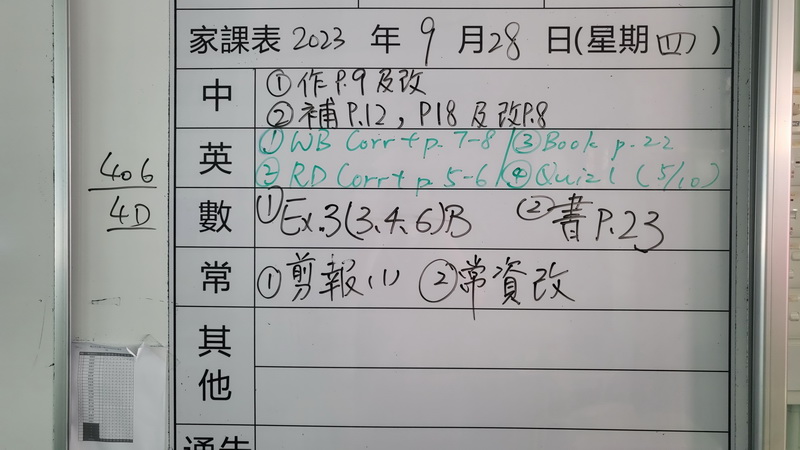 家課表 2023 年 9 月 28 日(星期四)
中
① 作 P.9 及改
② 補 P.12, P18 及改P.8
英
① WB Corr + p. 7-8 / ③ Book p. 22
② RD Corr + p 5-6 / ④ Quiz 1 (5/10)
406
4D
數
① Ex.3(3.4.6)B ② 書 P.23
常
① 剪報(1) ② 常資改
其他
通告